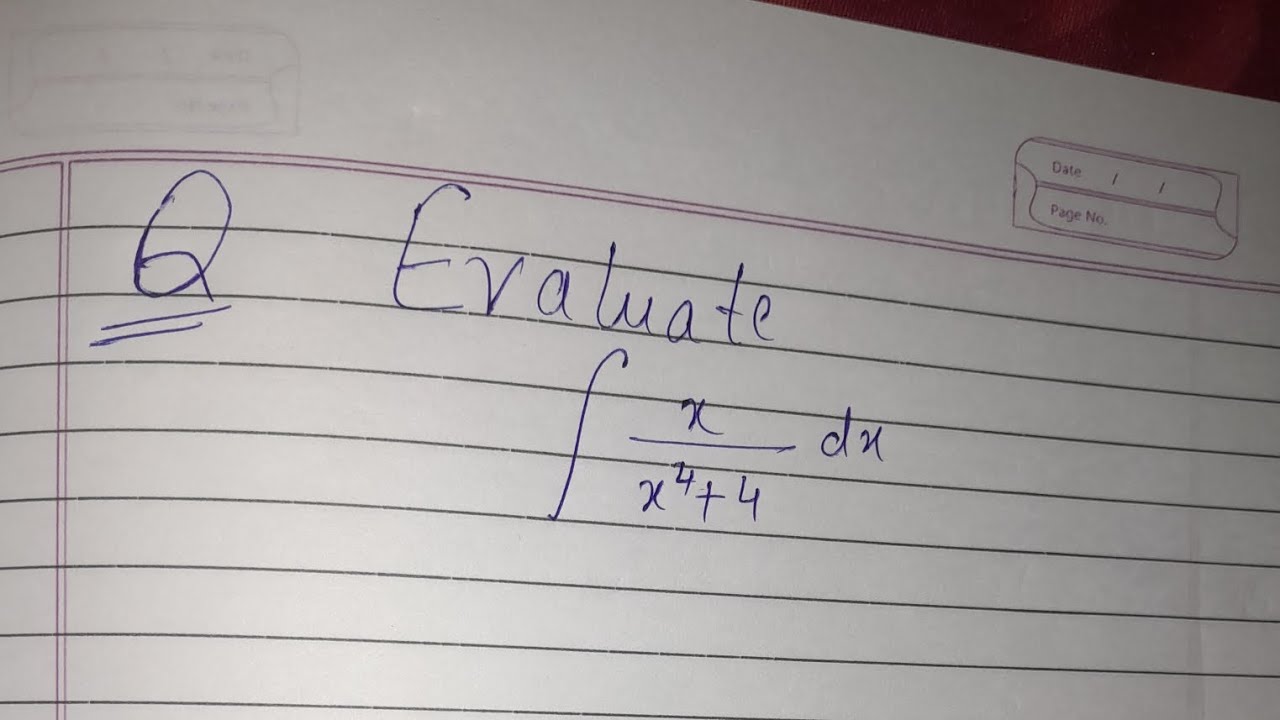 Date / /
Page No.
Q Evaluate
∫ x/(x⁴+4) dx